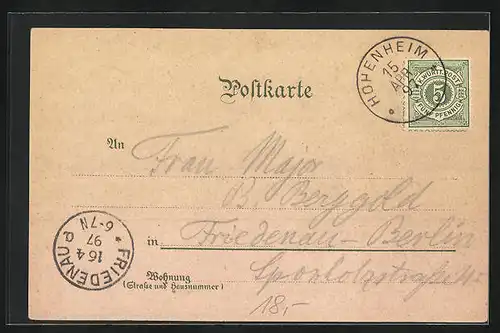 HOHENHEIM
15 APR 97
K. WÜRTT. POST
5
FÜNF PFENNIG
Postkarte
An Frau Major
B. Berggold
in Friedenau-Berlin
Wohnung Sponholzstraße
(Straße und Hausnummer)
FRIEDENAU
16 4
97
6-7N
18,-